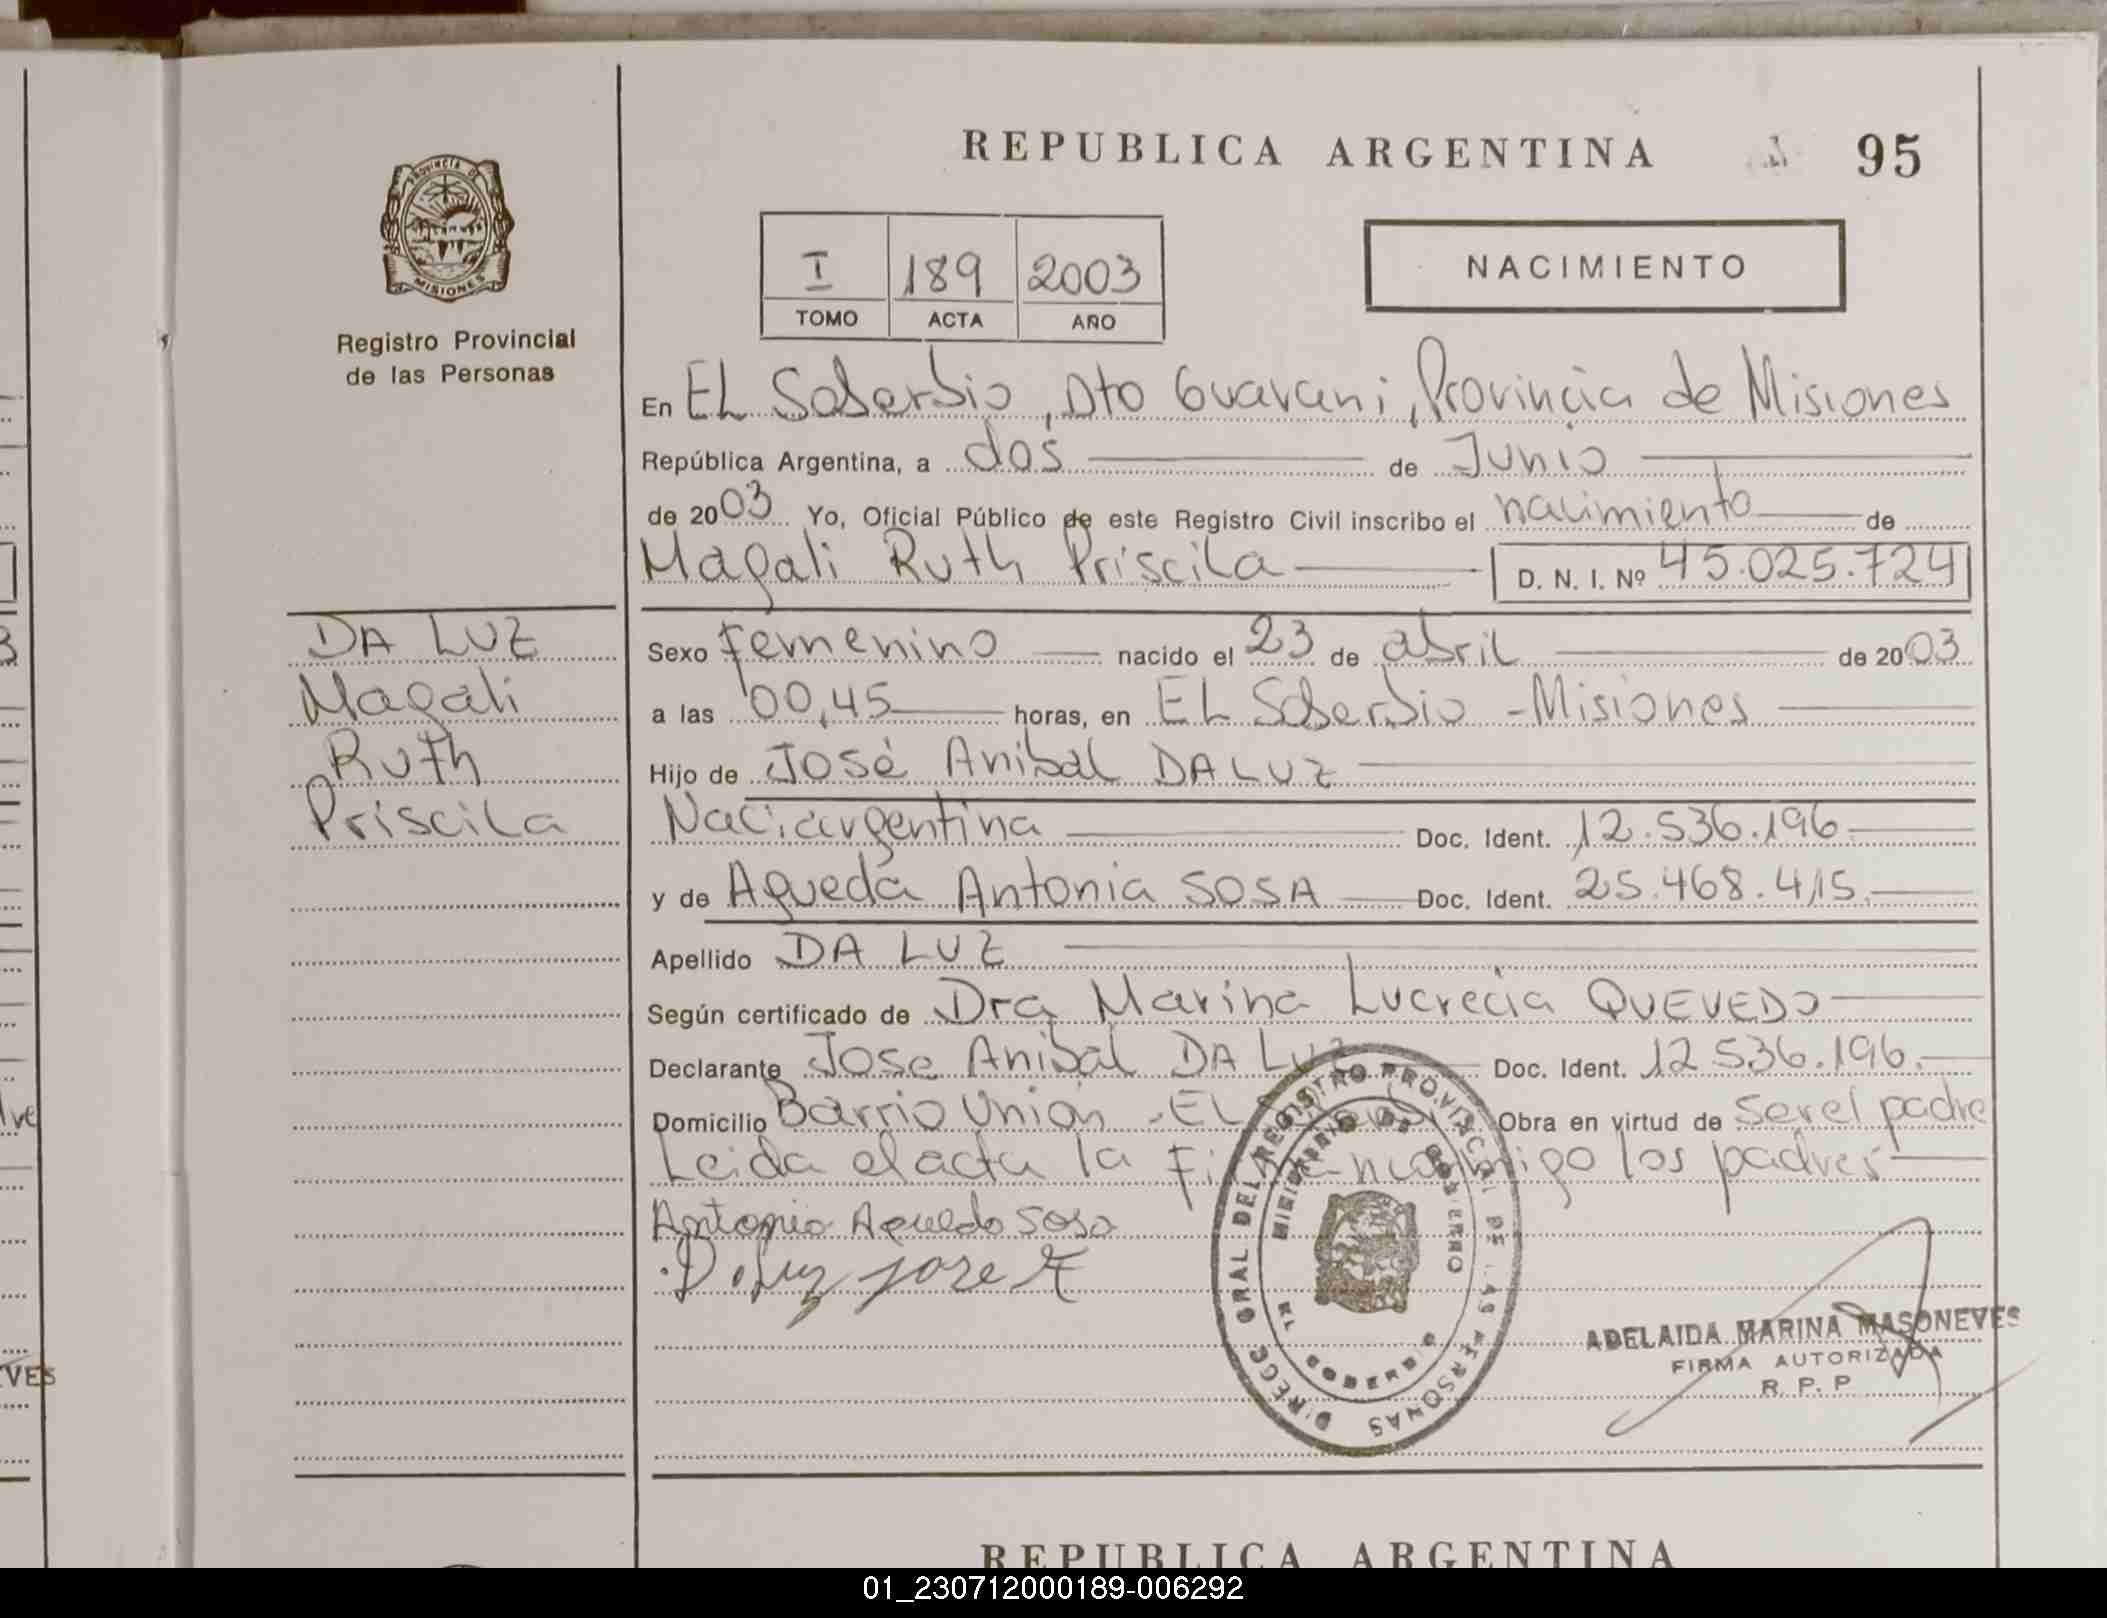 REPUBLICA ARGENTINA
95
PROVINCIA DE
MISIONES
Registro Provincial
de las Personas
I 189 2003
TOMO ACTA AÑO
NACIMIENTO
En EL Soberbio, Dto Guarani, Provincia de Misiones
República Argentina, a dos de Junio
de 2003 Yo, Oficial Público de este Registro Civil inscribo el nacimiento de
Magali Ruth Priscila D. N. I. Nº 45.025.724
DA LUZ
Magali
Ruth
Priscila
Sexo Femenino nacido el 23 de abril de 2003
a las 00,45 horas, en EL Soberbio - Misiones
Hijo de José Anibal DA LUZ
Nac. argentina Doc. Ident. 12.536.196
y de Agueda Antonia SOSA Doc. Ident. 25.468.415
Apellido DA LUZ
Según certificado de Dra Marina Lucrecia QUEVEDO
Declarante Jose Anibal DA LUZ Doc. Ident. 12 536.196.
Domicilio Barrio Unión - EL Obra en virtud de ser el padre
Leida el acta la conmigo los padres
Antonia Agueda Sosa
Da Luz jose
DIRECC GRAL DEL REGISTRO PROVINCIAL DE LAS PERSONAS
MINISTERIO DE GOBIERNO
EL SOBERBIO
ADELAIDA MARINA MASONEVES
FIRMA AUTORIZADA
R. P. P
VES
REPUBLICA ARGENTINA
01_230712000189-006292